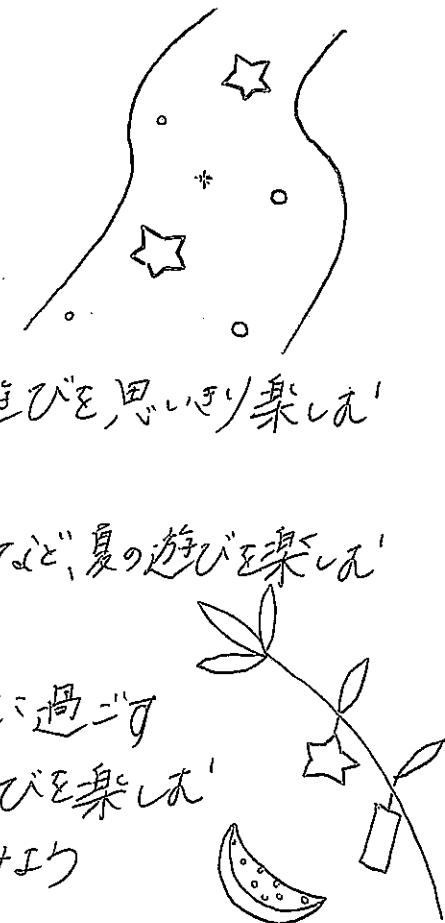 遊びを、思いきり楽しむ
など、夏の遊びを楽しむ
に過ごす
びを楽しむ